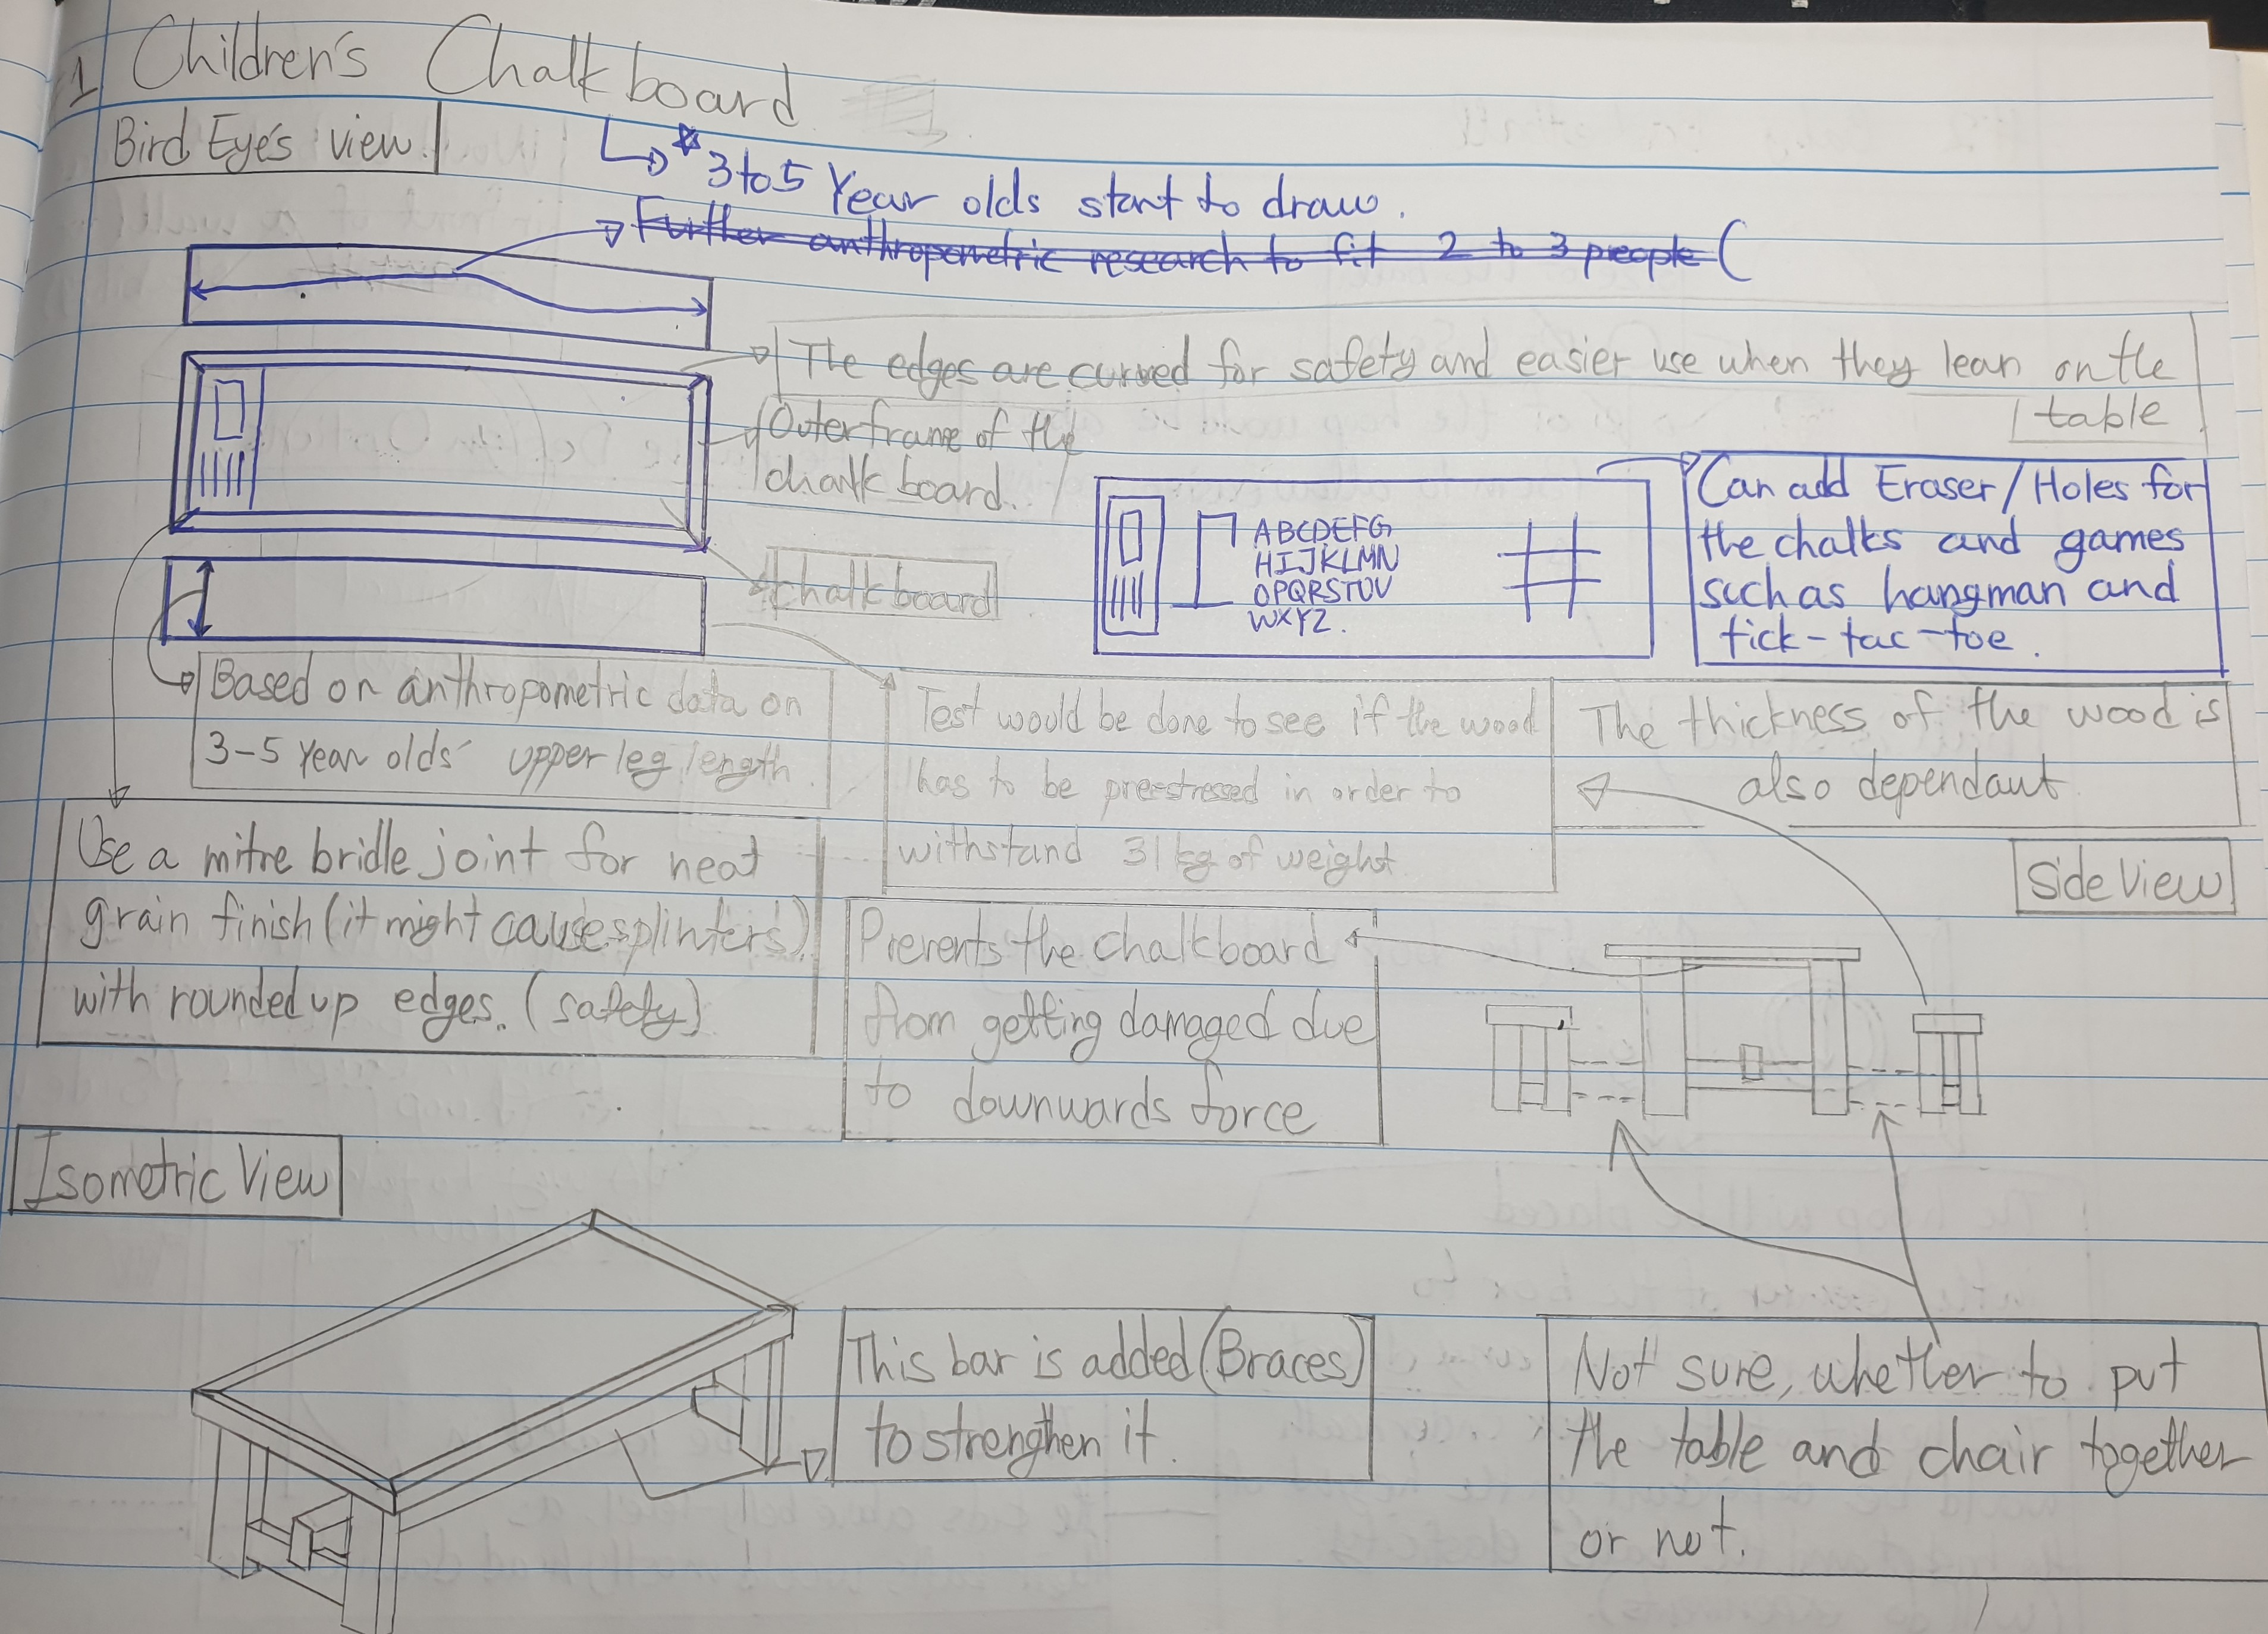 1 Children's Chalkboard
Bird Eye's view.
* 3 to 5 Year olds start to draw.
Further anthropometric research to fit 2 to 3 people (
The edges are curved for safety and easier use when they lean on the
table.
Outer frame of the
chalk board.
chalk board
ABCDEFG
HIJKLMN
OPQRSTUV
WXYZ.
Can add Eraser/Holes for
the chalks and games
such as hangman and
tick-tac-toe.
Based on anthropometric data on
3-5 Year olds' upper leg length.
Test would be done to see if the wood
has to be pre-stressed in order to
withstand 31 kg of weight.
The thickness of the wood is
also dependant
Use a mitre bridle joint for neat
grain finish (it might cause splinters)
with rounded up edges. (safety)
Side View
Prevents the chalkboard
from getting damaged due
to downwards force
Isometric View
This bar is added (Braces)
to strengthen it.
Not sure, whether to put
the table and chair together
or not.